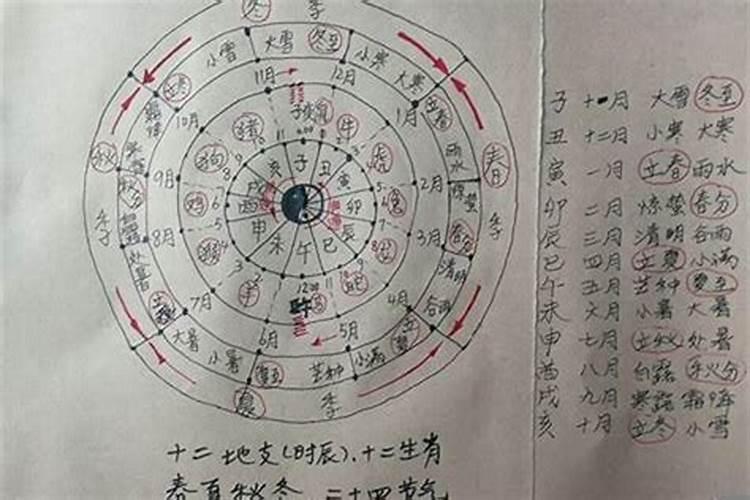 冬 季
小雪 大雪 冬至 小寒 大寒
立冬 11月 12月 立春
10月 1月
子 鼠
猪 牛
秋 狗 虎 雨水 春
9月 亥 子 丑 2月
秋分 鸡 戌 寅 兔 惊蛰
季 酉 卯 季
8月 申 辰 3月 春分
处暑 猴 未 午 巳 清明
立秋 7月 羊 12:00 蛇 4月 谷雨
午 马
大暑 6月 5月 立夏
小暑 夏至 芒种 小满
夏 季
子 十一月 大雪 冬至
丑 十二月 小寒 大寒
寅 一月 立春 雨水
卯 二月 惊蛰 春分
辰 三月 清明 谷雨
巳 四月 立夏 小满
午 五月 芒种 夏至
未 六月 小暑 大暑
申 七月 立秋 处暑
酉 八月 白露 秋分
戌 九月 寒露 霜降
亥 十月 立冬 小雪
十二地支(时辰)、十二生肖
春夏秋冬 二十四节气